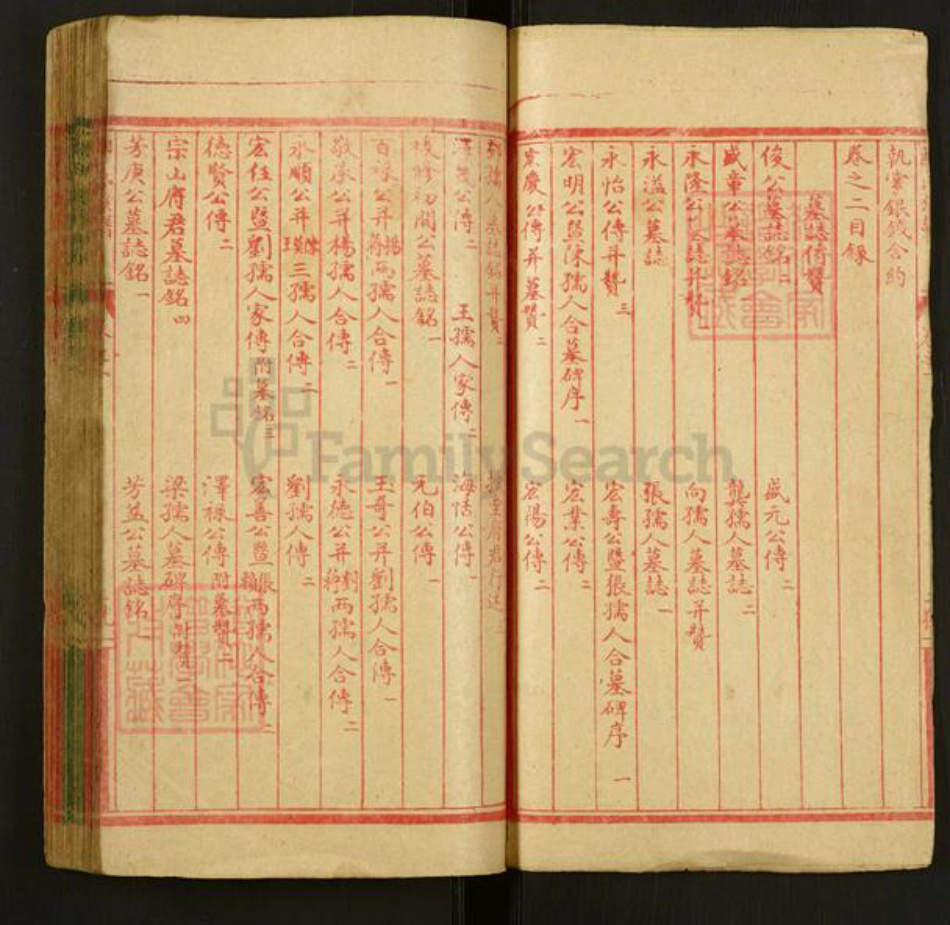 執業銀錢合約
卷之二目錄
墓誌傳贊
俊公墓誌銘二 盛元公傳二
盛章公墓誌銘 龔孺人墓誌二
永隆公墓誌并贊一 向孺人墓誌并贊
永溢公墓誌 張孺人墓誌一
永怡公傳并贊三 宏壽公暨張孺人合墓碑序一
宏明公暨陳孺人合墓碑序一 宏業公傳二
宏慶公傳并墓贊二 宏陽公傳二
孺人墓誌銘并贊二 府君行述三
公傳二 王孺人家傳二 海恬公傳一
公墓誌銘一 元伯公傳一
百祿公并楊蔣兩孺人合傳一 玉奇公并劉孺人合傳一
敬承公并楊孺人合傳二 永德公并劉蔣兩孺人合傳二
永順公并三孺人合傳二 劉孺人傳二
宏任公暨劉孺人家傳附墓銘三 宏善公暨張賴兩孺人合傳二
德賢公傳二 澤祿公傳附墓贊二
宗山府君墓誌銘四 梁孺人墓碑序附贊二
芳庚公墓誌銘一 芳益公墓誌銘一
FamilySearch